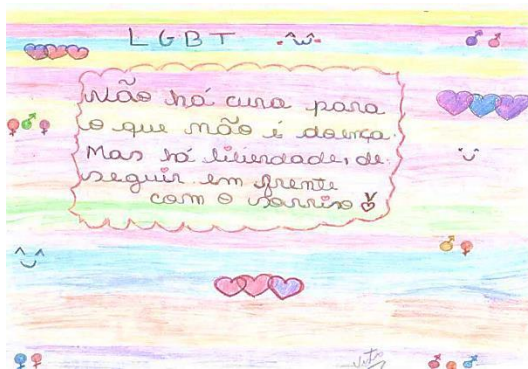 LGBT
Não há cura para
o que não é doença.
Mas há liberdade, de
seguir em frente
com o sorriso